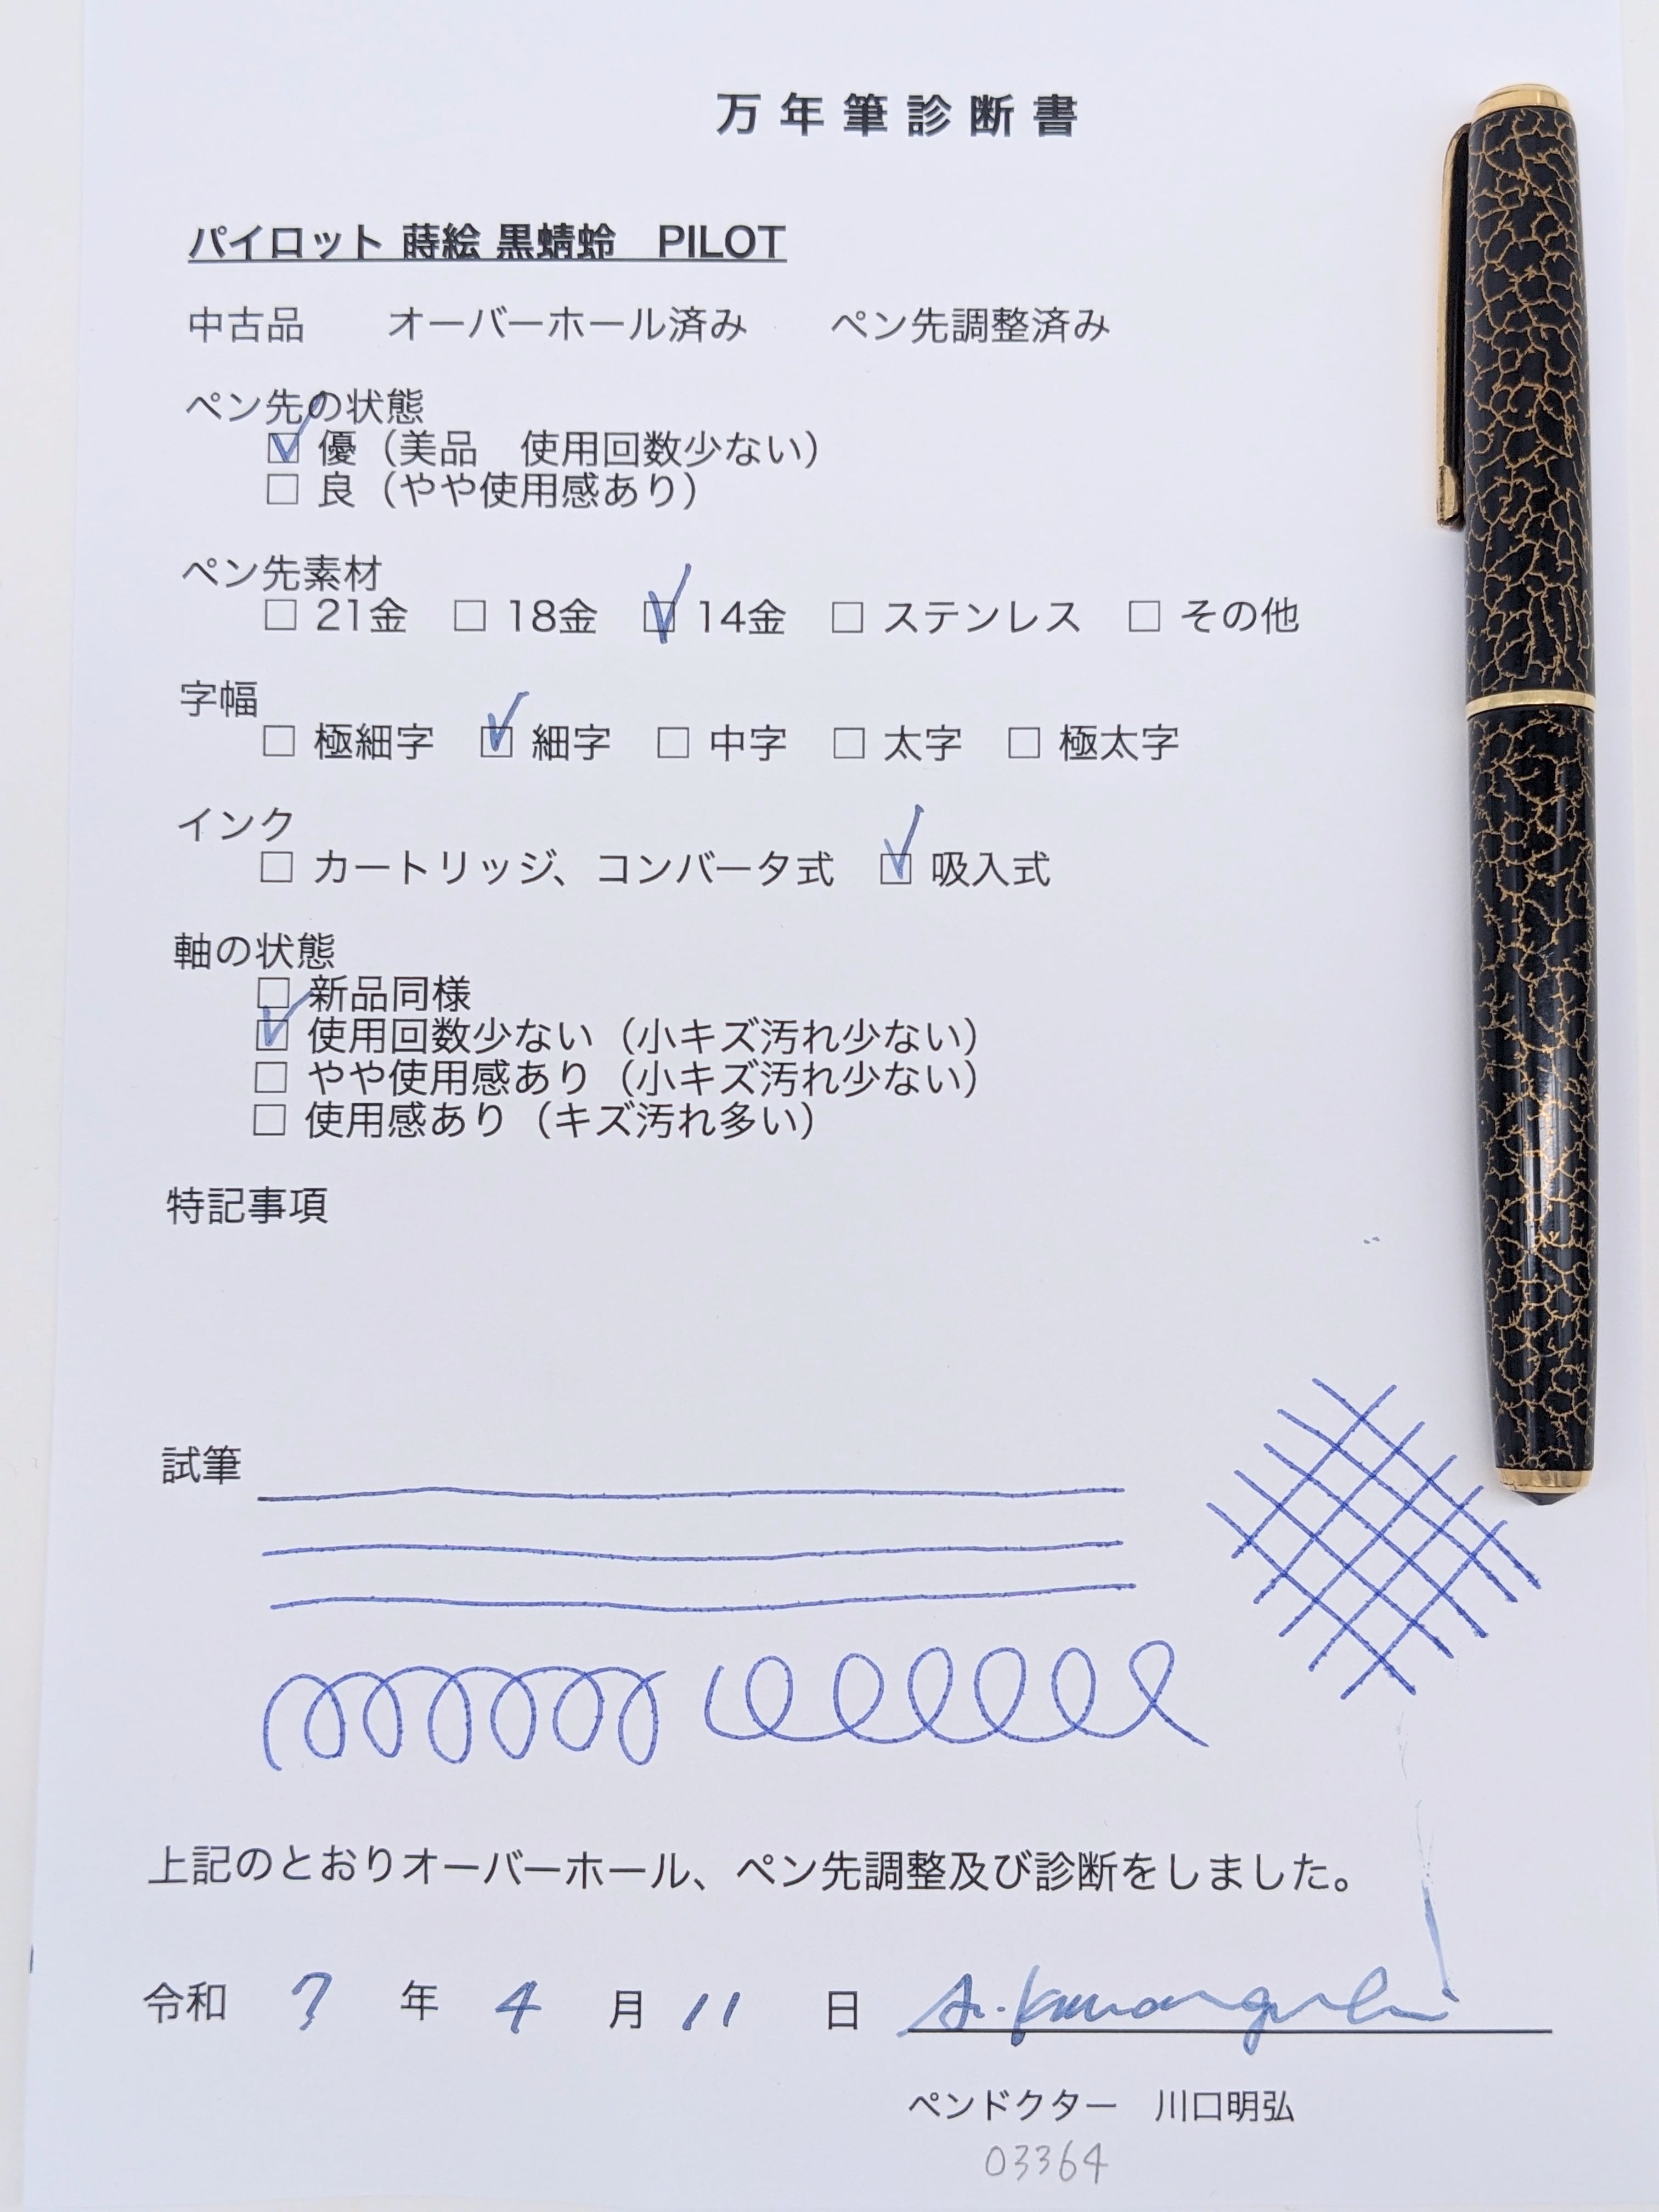 万年筆診断書
パイロット 蒔絵 黒蜻蛉　PILOT
中古品　　オーバーホール済み　　ペン先調整済み
ペン先の状態
☑ 優（美品　使用回数少ない）
□ 良（やや使用感あり）
ペン先素材
□ 21金　□ 18金　☑ 14金　□ ステンレス　□ その他
字幅
□ 極細字　☑ 細字　□ 中字　□ 太字　□ 極太字
インク
□ カートリッジ、コンバータ式　☑ 吸入式
軸の状態
□ 新品同様
☑ 使用回数少ない（小キズ汚れ少ない）
□ やや使用感あり（小キズ汚れ少ない）
□ 使用感あり（キズ汚れ多い）
特記事項
試筆
上記のとおりオーバーホール、ペン先調整及び診断をしました。
令和 7 年 4 月 11 日 A. Kawaguchi
ペンドクター　川口明弘
03364